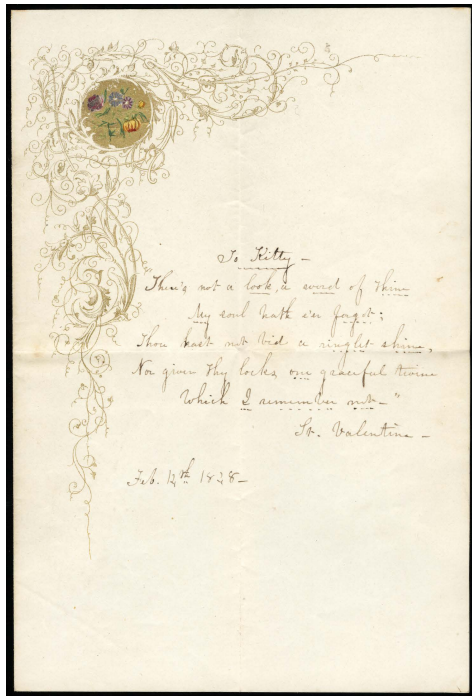 To Kitty -
There's not a look, a word of thine
My soul hath e'er forgot;
Thou hast not bid a ringlet shine,
Nor given thy locks one graceful twine
Which I remember not - "
St. Valentine -
Feb. 14th